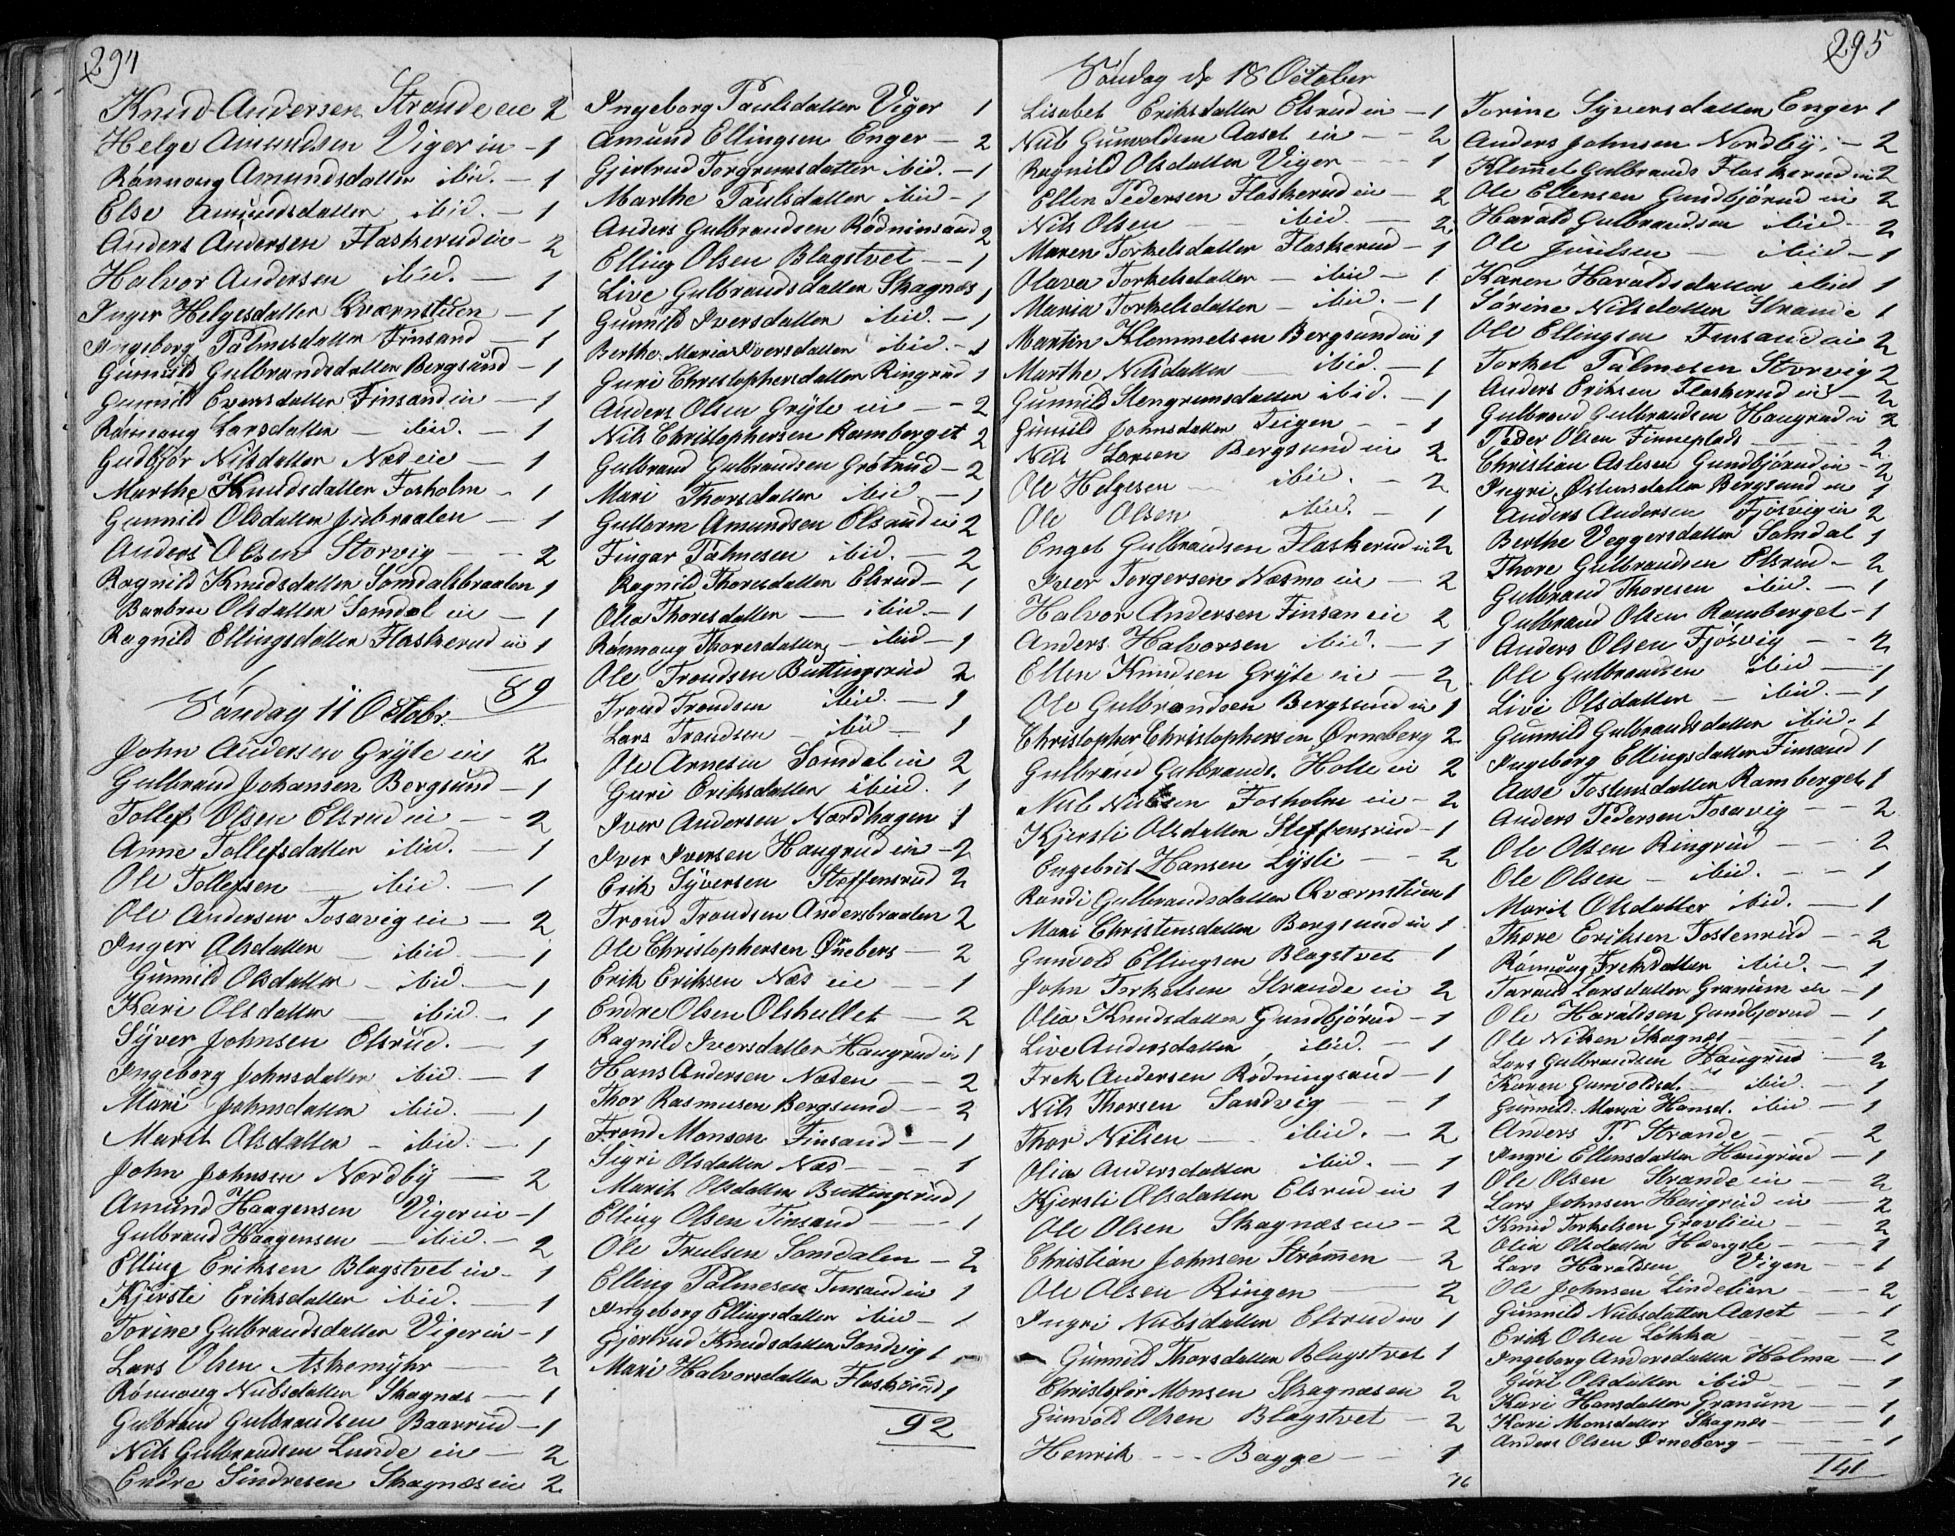 294
Knud Andersen Strande eie 2
Helge Amundsen Viger eie - 1
Rønnoug Amundsdatter ibid. - 1
Else Amundsdatter ibid. - 1
Anders Andersen Flaskerud eie - 2
Halvor Andersen ibid. - 1
Inger Helgesdatter Qværnstuen - 1
Ingeborg Palmesdatter Finsand - 1
Gunnild Gulbrandsdatter Bergsund - 1
Gunnild Evensdatter Finsand eie - 1
Rønnoug Larsdatter - ibid. - 1
Gudbjør Nilsdatter Næs eie - 1
Marthe Knudsdatter Fosholm - 1
Gunnild Olsdatter Juvbraaten - 1
Anders Olsen Storvig - - 2
Ragnild Knudsdatter Somdalsbraaten 1
Barbro Olsdatter Somdal eie - 1
Ragnild Ellingsdatter Flaskerud eie 1
89
Søndag 11 Octobr.
John Andersen Gryte eie 2
Gulbrand Johansen Bergsund - 1
Tollef Olsen Elsrud eie - 2
Anne Tollefsdatter ibid. - 1
Ole Tollefsen - ibid. - 1
Ole Andersen Tosavig eie - 2
Inger Olsdatter - ibid. - 1
Gunnild Olsdatter - ibid. - 1
Kari Olsdatter - ibid. - 1
Syver Johnsen Elsrud. - 1
Ingeborg Johnsdatter ibid. - 1
Mari Johnsdatter ibid. - 1
Marit Olsdatter - ibid. - 1
John Johnsen Nordby - 2
Amund Haagensen Viger eie - 1
Gulbrand Haagensen - ibid. - 2
Elling Eriksen Blagstvet eie - 1
Kjerste Eriksdatter ibid. - 1
Torine Gulbrandsdatter Viger eie - 1
Lars Olsen Askemyhr - 2
Rønnoug Nubsdatter Skagnæs - 1
Gulbrand Gulbrandsen Baarrud - 1
Nils Gulbrandsen Lunde eie - 2
Endre Sindresen Skagnæs eie 2
Ingeborg Paulsdatter Viger 1
Amund Ellingsen Enger - 2
Gjertrud Torgrumsdatter ibid. - 1
Marthe Paulsdatter ibid - 1
Anders Gulbrandsen Rødninsand 2
Elling Olsen Blagstvet - - 1
Live Gulbrandsdatter Skagnæs 1
Gunnild Iversdatter ibid. - 1
Berthe Maria Iversdatter ibid. - 1
Guri Christophersdatter Ringrud 1
Anders Olsen Gryte eie - - 2
Nils Christophersen Ramberget 2
Gulbrand Gulbrandsen Grøtrud - 2
Mari Thorsdatter ibid - 1
Guttorm Amundsen Elsrud eie 2
Fingar Palmesen ibid. - 2
Ragnild Thoresdatter Elsrud - 1
Olia Thoresdatter - ibid - 1
Rønnoug Thoresdatter - ibid - 1
Ole Trondsen Buttingsrud 2
Trond Trondsen ibid. - 1
Lars Trondsen - ibid - 1
Ole Arnesen Somdal eie 2
Guri Eriksdatter ibid. 1
Iver Andersen Nordhagen 1
Iver Iversen Haugrud eie - 2
Erik Syversen Steffensrud 2
Trond Trondsen Andersbraaten 2
Ole Christophersen Ørneberg - 2
Erik Eriksen Næs eie - 1
Endre Olsen Olshullet - 2
Ragnild Iversdatter Haugrud eie 1
Hans Andersen Næsen - - 2
Thor Rasmusen Bergsund - - 2
Trond Monsen Finsand - - 1
Sigri Olsdatter Næs - - - 1
Marit Olsdatter Buttingsrud 1
Elling Olsen Finsand - - 1
Ole Trulsen Somdalen - 2
Elling Palmesen Finsand eie 1
Ingeborg Ellingsdatter ibid - 1
Gjertrud Knudsdatter Sandvig 1
Mari Halvorsdatter Flaskerud 1
92
Søndag d 18 October
Lisabet Eriksdatter Elsrud eie - 1
Nub Gunvoldsen Aaset eie - - 2
Ragnild Olsdatter Viger - - 1
Ellen Pedersen Flaskerud eie - 2
Nils Olsen ibid. - 2
Maren Torkelsdatter Flaskerud - 1
Olava Torkelsdatter - ibid - 1
Maria Torkelsdatter - ibid. - 1
Martin Klemmetsen Bergsund eie 1
Marthe Nilsdatter - ibid. - 1
Gunnild Stengrumsdatter ibid. - 1
Gunnild Johnsdatter Teigen - - 1
Nils Larsen Bergsund eie 2
Ole Helgesen ibid. - 2
Ole Olsen ibid. - 1
Engeb Gulbrandsen Flaskerud eie 2
Peter Torgersen Næsmo eie - 2
Halvor Andersen Finsan eie 2
Anders Halvorsen ibid. - 1
Ellen Knudsen Gryte eie - 2
Ole Gulbrandsen Bergsund eie 1
Christopher Christophersen Ørneberg 2
Gulbrand Gulbrands. Holte eie 2
Nub Nubsen Fosholm eie - 2
Kjersti Olsdatter Steffensrud - 1
Engebrit Hansen Lysli - - 2
Randi Gulbrandsdatter Qværnstuen 1
Mari Christensdatter Bergsund eie 1
Gunvold Ellingsen Blagstvet 1
John Torkelsen Strande eie 2
Olia Knudsdatter Gundbjørud - 1
Live Andersdatter ibid. - 1
Frek Andersen Rødningsand - 1
Nils Thorsen Sandvig - - 1
Thor Nilsen - ibid. - 2
Olia Andersdatter ibid. - 1
Kjersti Olsdatter Elsrud eie 1
Ole Olsen Skagnæs eie - 2
Christian Johnsen Strømmen - 2
Ole Olsen Ringen - 2
Ingri Nubsdatter Elsrud eie 1
Gunnild Thorsdatter Blagstvet 1
Christofor Monsen Skagnæs en 2
Gunvold Olsen Blagstvet - 2
Henrik - - - Bagge - - 1
76
295
Torine Syversdatter Enger 1
Anders Johnsen Nordby - 2
Klemmet Gulbrands Flaskerud eie 2
Ole Ellensen Gundbjørud eie 2
Harald Gulbrandsen ibid - 2
Ole Juulsen - ibid - 1
Karen Haraldsdatter ibid 1
Sørine Nilsdatter Strande 1
Ole Ellingsen Finsand eie 2
Torkel Palmesen Storvig 2
Anders Eriksen Flaskerud eie - 2
Gulbrand Gulbrandsen Haugrud eie 2
Peder Olsen Finneplads - - 2
Christian Aslesen Gundbjørud eie - 2
Ingri Østensdatter Bergsund eie 1
Anders Andersen Fjøsvig eie 2
Berthe Veggersdatter Somdal 1
Thore Gulbrandsen Elsrud - 2
Gulbrand Thoresen ibid. - 1
Gulbrand Olsen Ramberget - 1
Anders Olsen Fjøsvig - - 2
Ole Gulbrandsen ibid - 1
Live Olsdatter - ibid. - 1
Gunnild Gulbrandsdatter ibid. 1
Ingeborg Ellingsdatter Finsand 1
Aase Tostensdatter Ramberget 1
Anders Pedersen Tosavig - - 2
Ole Olsen Ringrud - - 2
Ole Olsen - ibid. - - 1
Marit Olsdatter ibid. - 1
Thore Eriksen Tostenrud - - 2
Rønnoug Freksdatter ibid. - 1
Tarand Larsdatter Granum eie - 1
Ole Haraldsen Gundbjørud - 1
Ole Nilsen Skagnæs - - 1
Lars Gulbrandsen Haugrud - 2
Karen Gunvoldsd. - ibid. - 1
Gunnild Maria Hansd. ibid - 1
Anders P. Strande - - 2
Ingri Ellensdatter Haugrud - 1
Ole Olsen Strande eie - - 2
Lars Johnsen Haugrud eie 2
Knud Torkelsen Gravli eie 2
Olia Olsdatter Hængsle - - 1
Lars Haraldsen Vigen - - 1
Ole Johnsen Lindelien - - 2
Gunnild Nubsdatter Aaset - - 1
Erik Olsen Løkka - - 2
Ingeborg Andersdatter Holma - 1
Guri Olsdatter ibid - - 1
Kari Hansdatter Granum - - 1
Kari Monsdatter Skagnæs - - 1
Anders Olsen Ørneberg - - 1
141